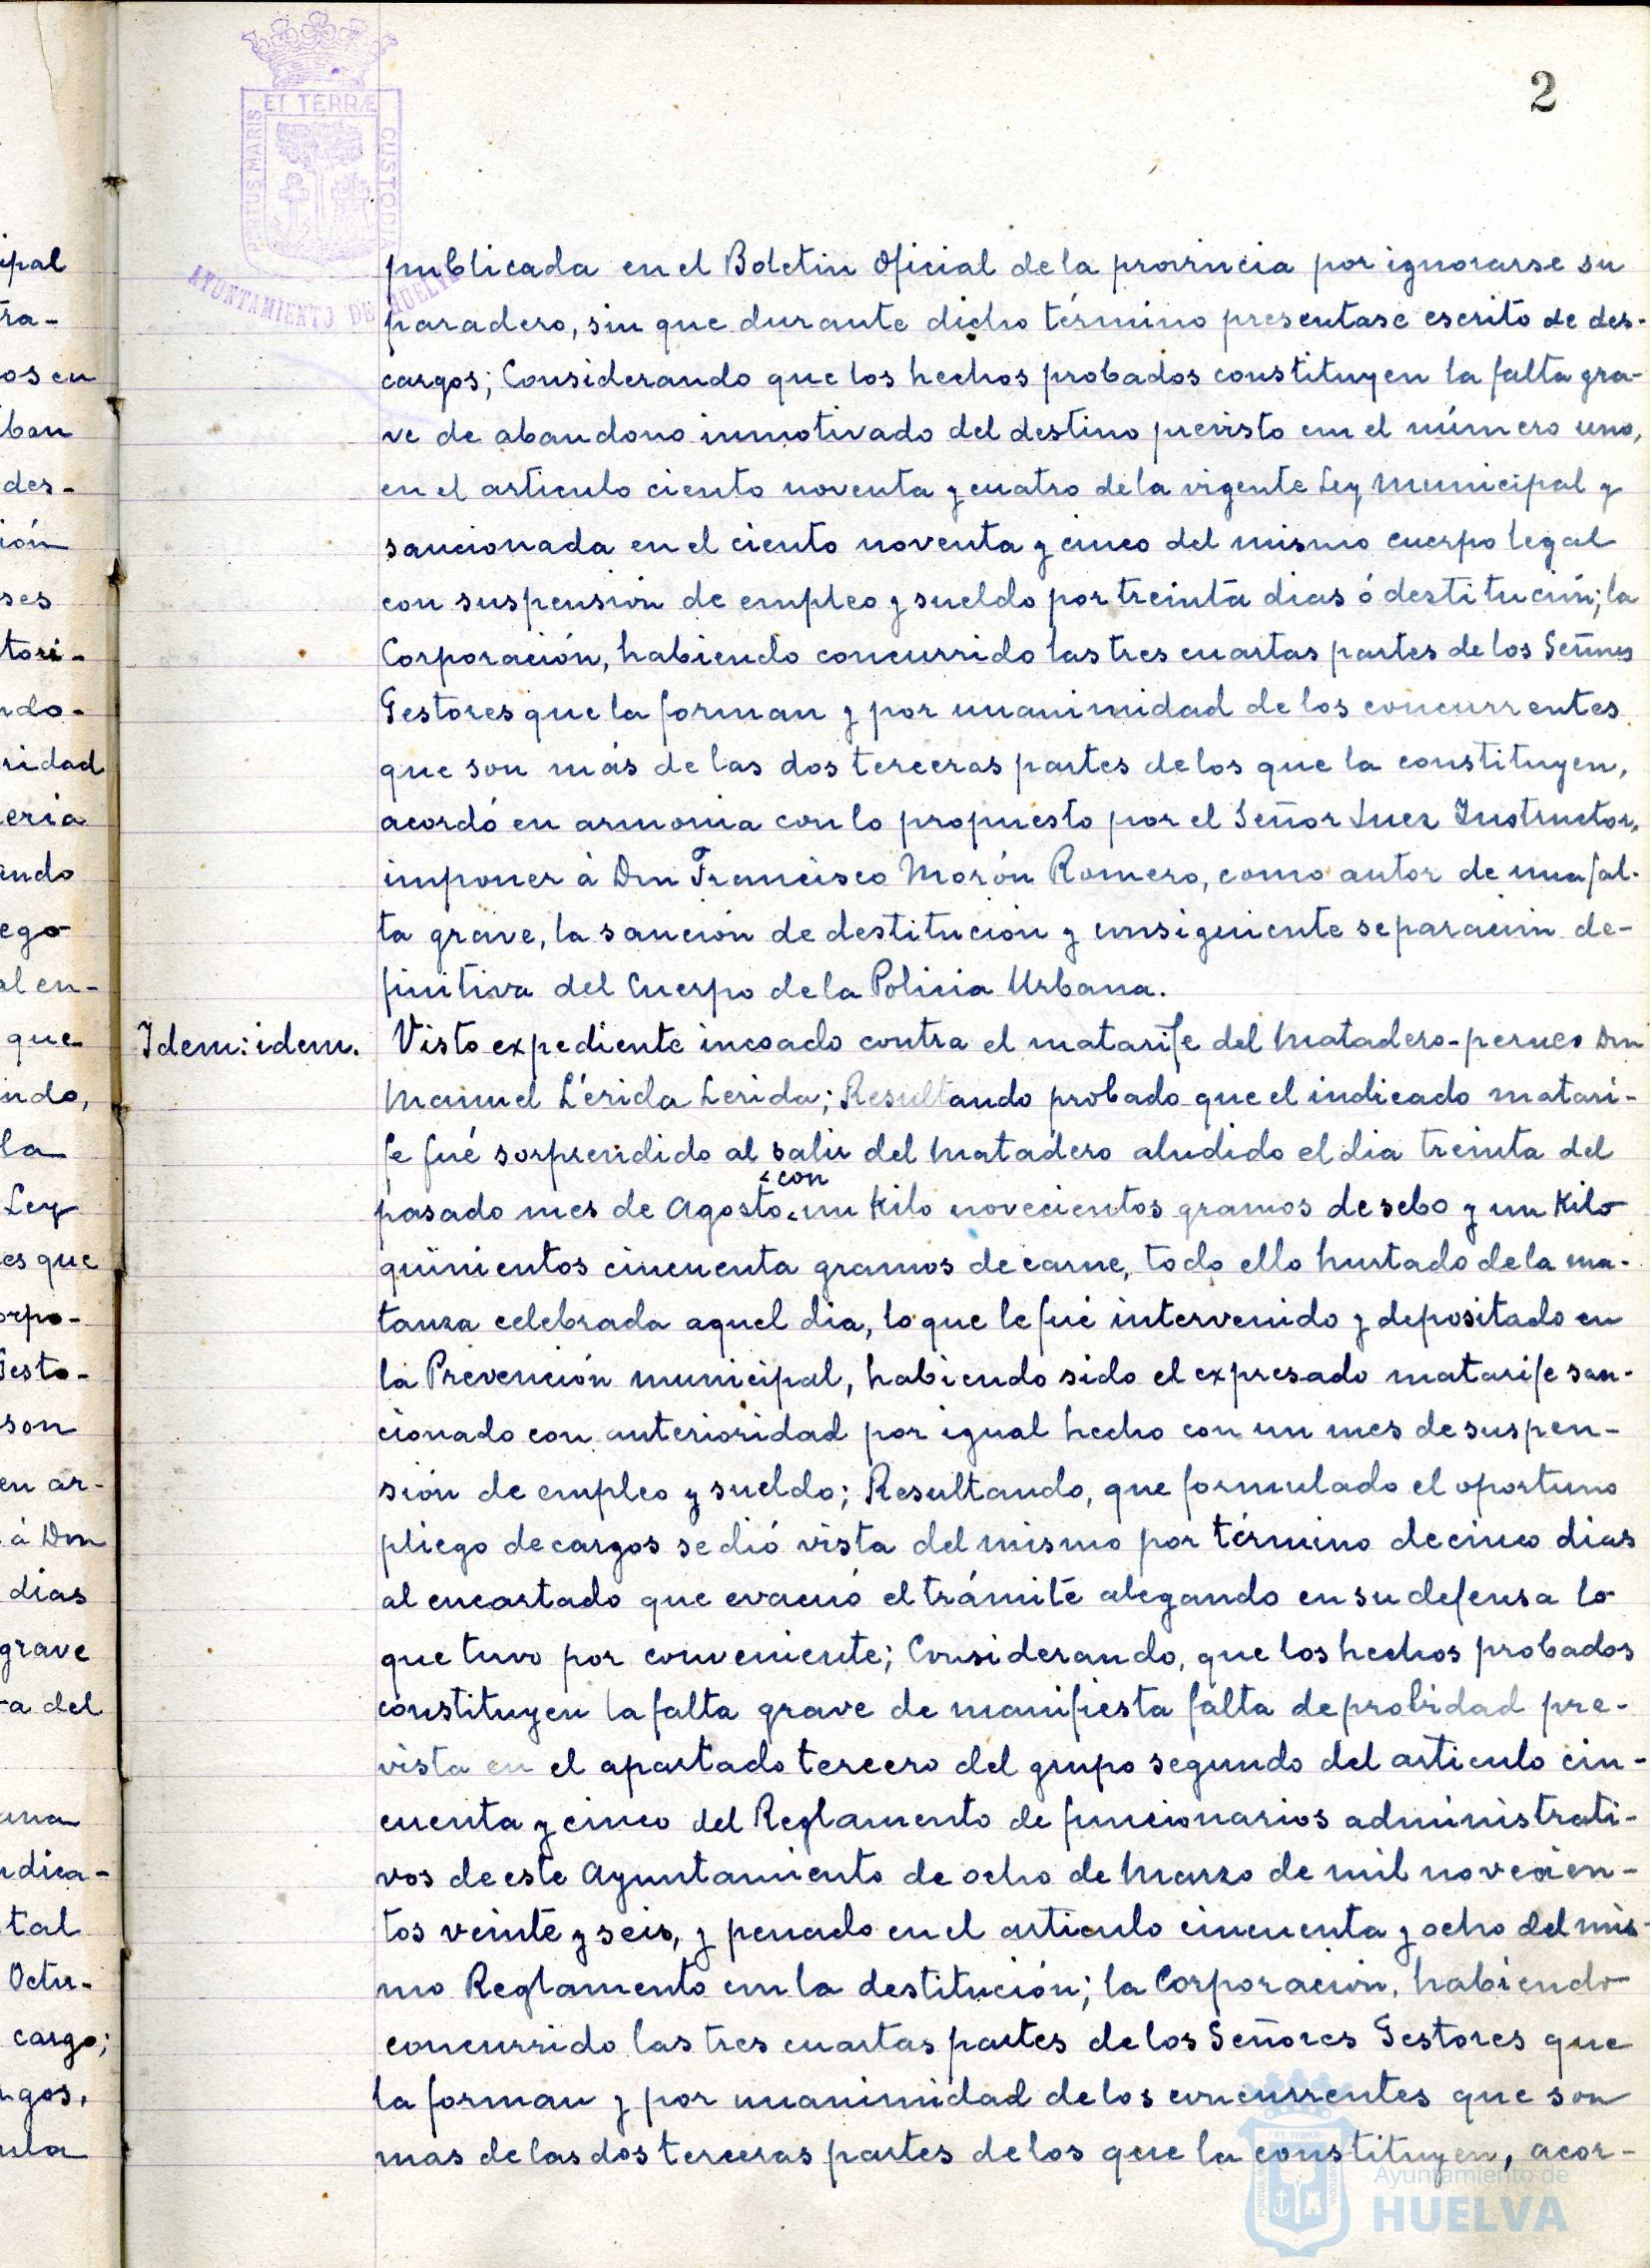 2
ET TERRÆ
PORTUS MARIS
CUSTODIA
AYUNTAMIENTO DE HUELVA
publicada en el Boletin Oficial de la provincia por ignorarse su
paradero, sin que durante dicho término presentase escrito de des-
cargos; Considerando que los hechos probados constituyen la falta gra-
ve de abandono inmotivado del destino previsto en el número uno,
en el articulo ciento noventa y cuatro de la vigente Ley Municipal y
sancionada en el ciento noventa y cinco del mismo cuerpo legal
con suspensión de empleo y sueldo por treinta dias ó destitución; la
Corporación, habiendo concurrido las tres cuartas partes de los Señores
Gestores que la forman y por unanimidad de los concurrentes
que son más de las dos terceras partes de los que la constituyen,
acordó en armonia con lo propuesto por el Señor Juez Instructor,
imponer á Don Francisco Morón Romero, como autor de una fal-
ta grave, la sanción de destitución y consiguiente separación de-
finitiva del Cuerpo de la Policia Urbana.
Idem: idem. Visto expediente incoado contra el matarife del Matadero-perneo Don
Manuel Lérida Lerida; Resultando probado que el indicado matari-
fe fué sorprendido al salir del Matadero aludido el dia treinta del
pasado mes de Agosto con un Kilo novecientos gramos de sebo y un Kilo
quinientos cincuenta gramos de carne, todo ello hurtado de la ma-
tanza celebrada aquel dia, lo que le fué intervenido y depositado en
la Prevención municipal, habiendo sido el expresado matarife san-
cionado con anterioridad por igual hecho con un mes de suspen-
sión de empleo y sueldo; Resultando, que formulado el oportuno
pliego de cargos se dió vista del mismo por término de cinco dias
al encartado que evacuó el trámite alegando en su defensa lo
que tuvo por conveniente; Considerando, que los hechos probados
constituyen la falta grave de manifiesta falta de probidad pre-
vista en el apartado tercero del grupo segundo del articulo cin-
cuenta y cinco del Reglamento de funcionarios administrati-
vos de este Ayuntamiento de ocho de Marzo de mil novecien-
tos veinte y seis, y penado en el articulo cincuenta y ocho del mis-
mo Reglamento con la destitución; la Corporación, habiendo
concurrido las tres cuartas partes de los Señores Gestores que
la forman y por unanimidad de los concurrentes que son
mas de las dos terceras partes de los que la constituyen, acor-
Ayuntamiento de
HUELVA
ipal
tra-
os en
ban
des-
ión
ses
tori-
ndo-
ridad
eria
ando
ego
al en-
que
ndo,
la
Ley
es que
orpo-
Gesto-
son
en ar-
á Don
dias
grave
a del
una
ndica-
tal
Octu-
cargo;
rgos,
ula